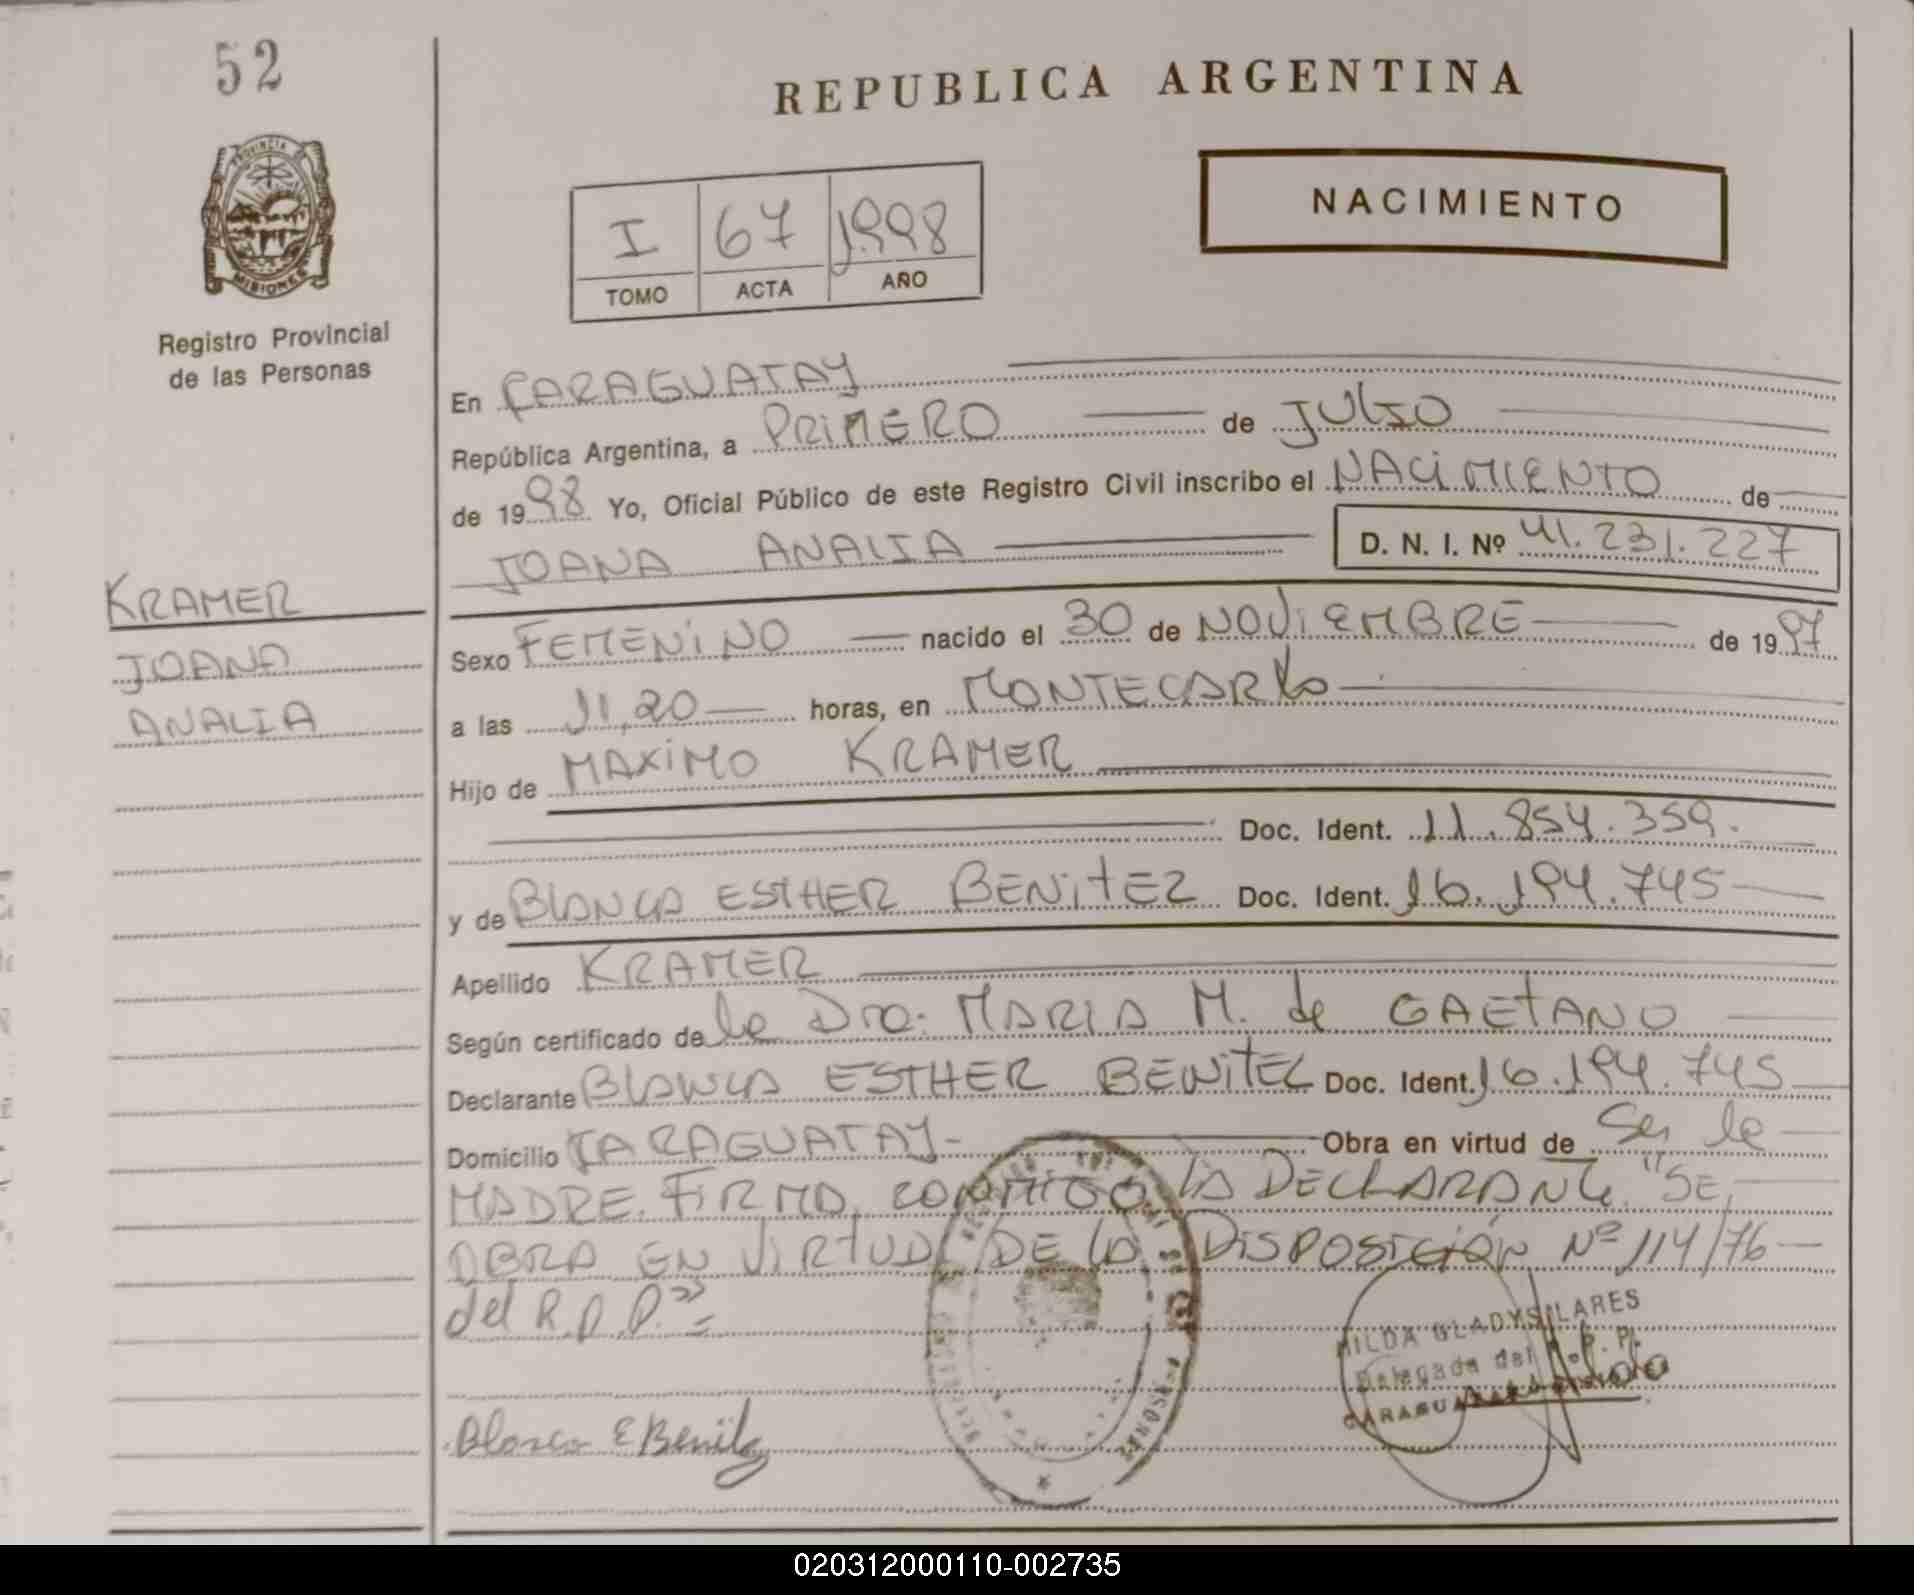 52
REPUBLICA ARGENTINA
PROVINCIA DE
MISIONES
Registro Provincial
de las Personas
I 67 1998
TOMO ACTA AÑO
NACIMIENTO
En CARAGUATAY
República Argentina, a PRIMERO de JULIO
de 1998 Yo, Oficial Público de este Registro Civil inscribo el NACIMIENTO de
JOANA ANALIA D. N. I. Nº 41.231.227
KRAMER
JOANA
ANALIA
Sexo FEMENINO nacido el 30 de NOVIEMBRE de 1997
a las 11,20 horas, en MONTECARLO
Hijo de MAXIMO KRAMER
Doc. Ident. 11.854.359.
y de BLANCA ESTHER BENITEZ Doc. Ident. 16.194.745
Apellido KRAMER
Según certificado de la Dra. MARIA M. de GAETANO
Declarante BLANCA ESTHER BENITEZ Doc. Ident. 16.194.745
Domicilio CARAGUATAY- Obra en virtud de Ser la
MADRE. FIRMA CONMIGO LA DECLARANTE. "SE
OBRA EN VIRTUD DE LA DISPOSICIÓN Nº 114/76
del R.P.P."=
HILDA GLADYS LARES
Delegada del R. P. P.
CARAGUATAY
Blanca E Benitez
020312000110-002735